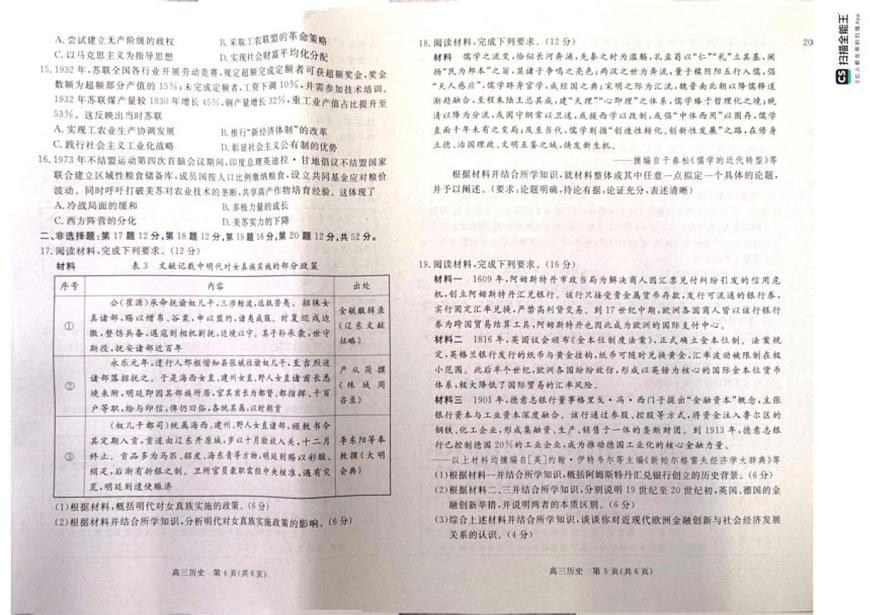 A. 尝试建立无产阶级的政权 B. 采取工农联盟的革命策略
C. 以马克思主义为指导思想 D. 实现社会财富平均化分配
15. 1932年,苏联全国各行业开展劳动竞赛,规定超额完成定额者可获超额奖金,奖金
数额为超额部分产值的15%;未完成定额者,工资下调10%,并需参加技术培训。
1932年苏联煤产量较1930年增长45%,钢产量增长32%,重工业产值占比提升至
53%。这反映出当时苏联
A. 实现工农业生产协调发展 B. 推行“新经济体制”的改革
C. 践行社会主义工业化战略 D. 彰显社会主义公有制的优势
16. 1973年不结盟运动第四次首脑会议期间,印度总理英迪拉·甘地倡议不结盟国家
联合建立区域性粮食储备库,成员国按人口比例缴纳粮食,设立共同基金应对粮价
波动。同时呼吁打破美苏对农业技术的垄断,共享高产作物培育经验。这体现了
A. 冷战局面的缓和 B. 多极力量的成长
C. 西方阵营的分化 D. 美苏实力的下降
二、非选择题:第17题12分,第18题12分,第19题16分,第20题12分,共52分。
17. 阅读材料,完成下列要求。(12分)
材料 表3 文献记载中明代对女真族实施的部分政策
序号 内容 出处
①
公(崔源)承命抚谕奴儿干,三涉鲸波,远敷苦夷。招徕女
真诸部,赐以缯帛、谷粟,申以盟约,诸夷咸服。时复巡戍边
徼,整饬兵备,遇寇则相机剿抚,边境以宁。其子孙承袭,世守
斯役,抚安诸部近百年
②
永乐元年,遣行人邢枢偕知县张斌往谕奴儿干,至吉烈迷
诸部落招抚之。于是海西女直、建州女直、野人女直诸酋长悉
境来附,明廷即因其部族所居,官其酋长为都督、都指挥、千百
户等职,给与印信,俾仍旧俗,各统其属,以时朝贡
严从简撰
《殊域周
咨录》
③
(奴儿干都司)统属海西、建州、野人女直诸部,颁敕书令
其定期入贡,贡道由辽东开原城,岁以十月验放入关,十二月
终止。贡品多为马匹、貂皮、海东青等方物,明廷则赐以彩缎、
绢疋,后渐有折银之制。卫所官员袭职需经中央核准,遇有灾
荒,明廷则遣使赈济
李东阳等奉
敕撰《大明
会典》
(1)根据材料,概括明代对女真族实施的政策。(6分)
(2)根据材料并结合所学知识,分析明代对女真族实施政策的影响。(6分)
高三历史 第4页(共6页)
18. 阅读材料,完成下列要求。(12分)
材料 儒学之流变,恰似长河奔涌,先秦之时为温觞,孔孟荀以“仁”“礼”立其基,阐
扬“民为邦本”之旨,显诸子争鸣之亮色;两汉之世为奔流,董子糅阴阳五行入儒,倡
“天人感应”,儒学跻身官学,成经国之典;宋明之际为汇流,魏晋南北朝以降儒释道
渐趋融合,至程朱陆王总其成,建“天理”“心即理”之体系,儒学臻于哲理化之境;晚
清以降为分流,或固守纲常以卫道,或援西学以改制,或倡“中体西用”以图存,儒学
直面千年未有之变局;及至当代,儒学则循“创造性转化、创新性发展”之路,在修身
立德、治国理政、文明互鉴之域,焕发新生机。
——摘编自干春松《儒学的近代转型》等
根据材料并结合所学知识,就材料整体或其中任意一点拟定一个具体的论题,
并予以阐述。(要求:论题明确,持论有据,论证充分,表述清晰)
19. 阅读材料,完成下列要求。(16分)
材料一 1609年,阿姆斯特丹市政当局为解决商人因汇票兑付纠纷引发的信用危
机,创立阿姆斯特丹汇兑银行。该行只接受贵金属货币存款,发行可流通的银行券,
实行固定汇率兑换,严禁高利贷交易。到17世纪中期,欧洲各国商人皆以该行银行
券为跨国贸易结算工具,阿姆斯特丹也因此成为欧洲的国际支付中心。
材料二 1816年,英国议会颁布《金本位制度法案》,正式确立金本位制。法案规
定,英格兰银行发行的纸币与黄金挂钩,纸币可随时兑换黄金,汇率波动被限制在极
小范围。此后半个世纪,欧洲各国纷纷效仿,形成以英镑为核心的国际金本位货币
体系,极大降低了国际贸易的汇率风险。
材料三 1901年,德意志银行董事格里戈·冯·西门子提出“金融资本”概念,主张
银行资本与工业资本深度融合。该行通过参股、控股等方式,将资金注入鲁尔区的
钢铁、化工企业,形成集融资、生产、销售于一体的垄断财团。到1913年,德意志银
行已控制德国20%的工业企业,成为推动德国工业化的核心金融力量。
——以上材料均摘编自[英]约翰·伊特韦尔等主编《新帕尔格雷夫经济学大辞典》等
(1)根据材料一并结合所学知识,概括阿姆斯特丹汇兑银行创立的历史背景。(6分)
(2)根据材料二、三并结合所学知识,分别说明19世纪至20世纪初,英国、德国的金
融创新举措,并说明两者的本质区别。(6分)
(3)综合上述材料并结合所学知识,谈谈你对近现代欧洲金融创新与社会经济发展
关系的认识。(4分)
高三历史 第5页(共6页)
20
CS 扫描全能王
3亿人都在用的扫描App